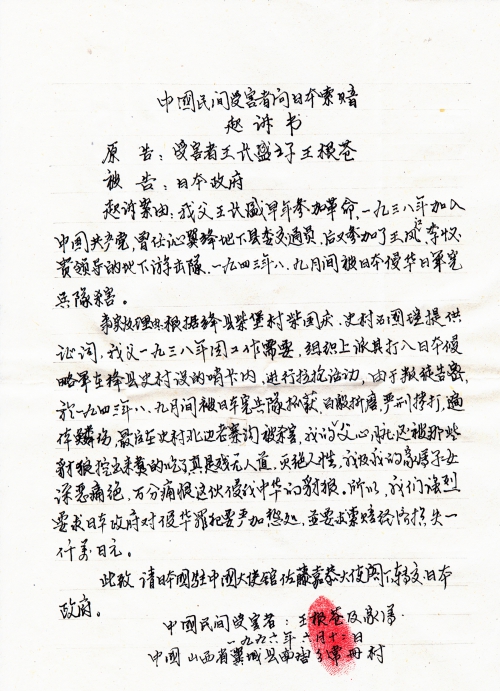 中國民间受害者向日本索賠
起诉书
原告：受害者王长盛之子王根苍
被告：日本政府
起诉案由：我父王长盛早年参加革命，一九三八年加入
中国共产党，曾任沁翼绛地下县委交通员，后又参加了王
领导的地下游击队，一九四三年八、九月间被日本侵华日軍宪
兵隊杀害。
事实及理由：根据绛县柴堡村柴国庆、史村石國 提供
证词，我父一九三八年因工作需要，组织上派其打入日本侵
略軍在绛县史村设的哨卡内，进行抗 活动，由于叛徒告密，
於一九四三年八、九月间被日本宪兵隊抓获，百般折磨，严刑拷打，遍
体鳞伤，最后在史村北边 沟被杀害，我的父心 还被那些
豺狼挖出来 的吃了真是残无人道，灭绝人性，我及我的家属子女
深恶痛绝，万分痛恨这伙侵我中华的豺狼。所以，我们强烈
要求日本政府对侵华罪犯要严加惩处，并要求索赔经济损失一
仟萬日元。
此致 请日本國驻中國大使舘佐藤嘉恭大使阁下转交日本
政府。
中國民间受害者：王根苍及家属
一九九六年六月十二日
中國山西省翼城县南唐乡 册村